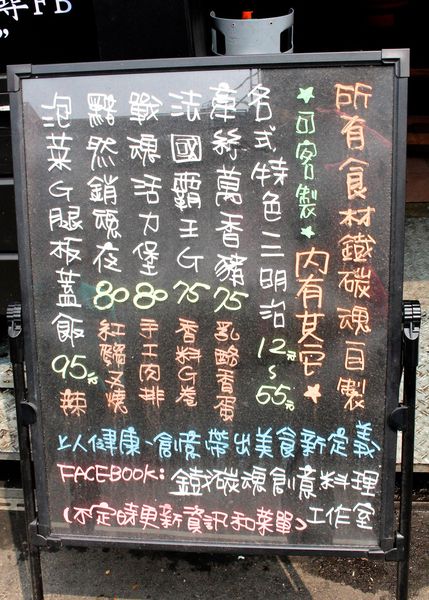 尋FB
所有食材鐵碳魂自製
★可客製★ 內有其它★
各式特色三明治 12元~55元
牽絲萬香豬 75 乳酪香蛋
法國霸王G 75 香料G卷
戰魂活力堡 80 手工肉排
黯然銷魂夜 80 紅醬叉燒
泡菜G腿板蓋飯 95元 辣
以健康、創意帶出美食新定義
FACEBOOK: 鐵碳魂創意料理
(不定時更新資訊和菜單) 工作室